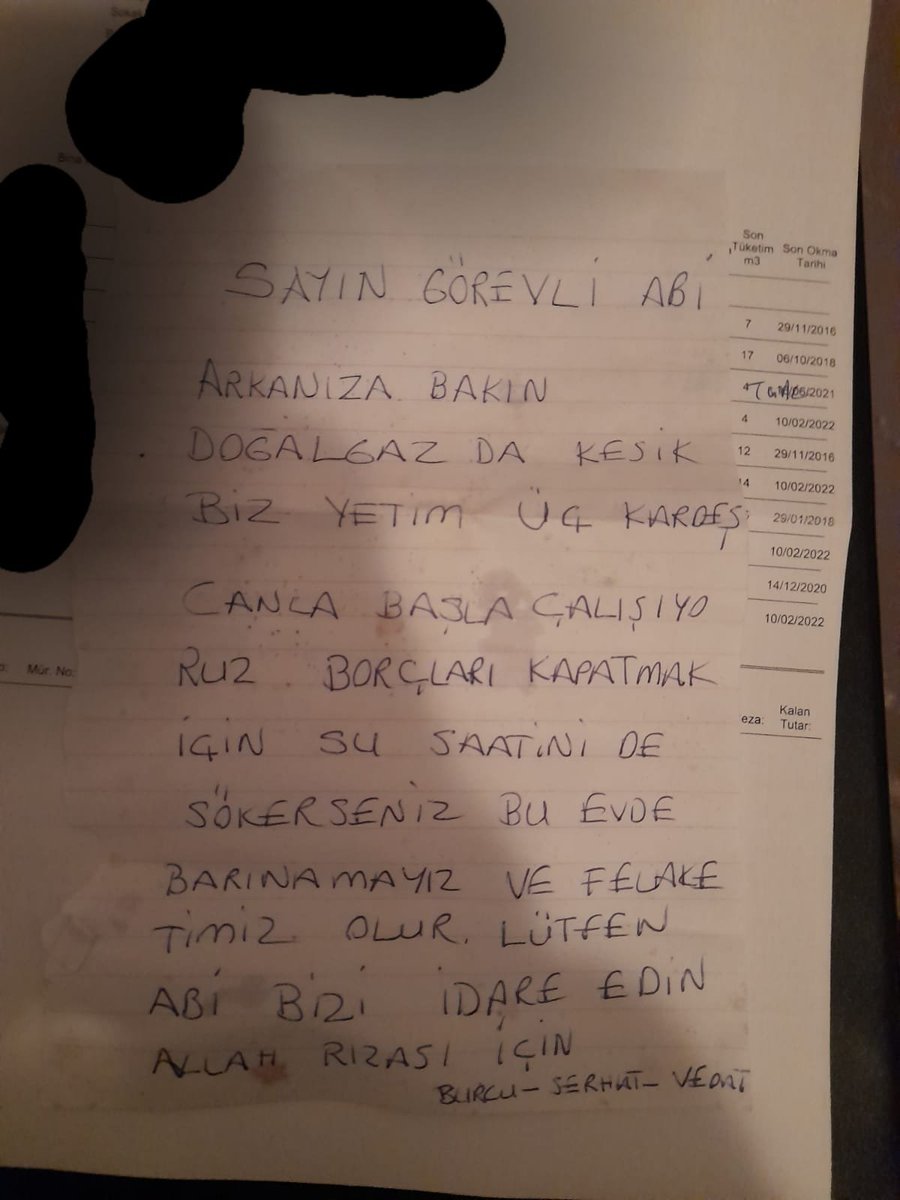 Bina
Son
Tüketim
m3
Son Okma
Tarihi
SAYIN GÖREVLİ ABİ
7 29/11/2016
17 06/10/2018
ARKANIZA BAKIN
4 10/02/2022
DOĞALGAZ DA KESİK
12 29/11/2016
14 10/02/2022
BİZ YETİM ÜÇ KARDEŞ
29/01/2018
10/02/2022
CANLA BAŞLA ÇALIŞIYO
14/12/2020
10/02/2022
RUZ BORÇLARI KAPATMAK
Mür. No:
İÇİN SU SAATİNİ DE
eza:
Kalan
Tutar:
SÖKERSENİZ BU EVDE
BARINAMAYIZ VE FELAKE
TİMİZ OLUR. LÜTFEN
ABİ BİZİ İDARE EDİN
ALLAH RIZASI İÇİN
BURCU - SERHAT - VEDAT